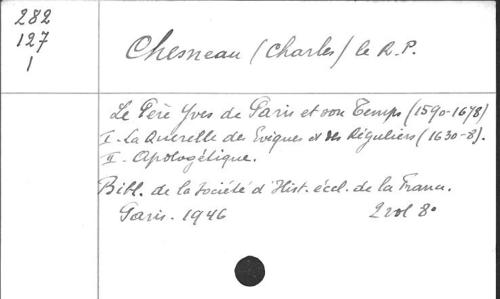 282
127
1
Chesneau (Charles) le R.P.
Le Père Yves de Paris et son Temps (1590-1678)
I - La Querelle des Evêques et des Réguliers (1630-8).
II - Apologétique.
Bibl. de la Société d'Hist. éccl. de la Franc.
Paris - 1946 2 vol 8º